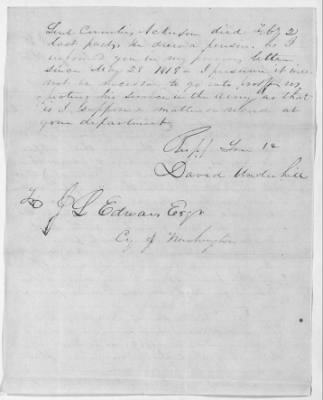 Lieut Cornelius Ackerson died Feby 2
last past, he drew a pension as I
informed you in my previous letter
since May 28 1818 I presume it will
not be necessary to go into proof res
pecting his service in the Army as that
is I suppose a matter of record at
your department
Respy Yrs &c
David Underhill
To J L Edwards Esqr
City of Washington